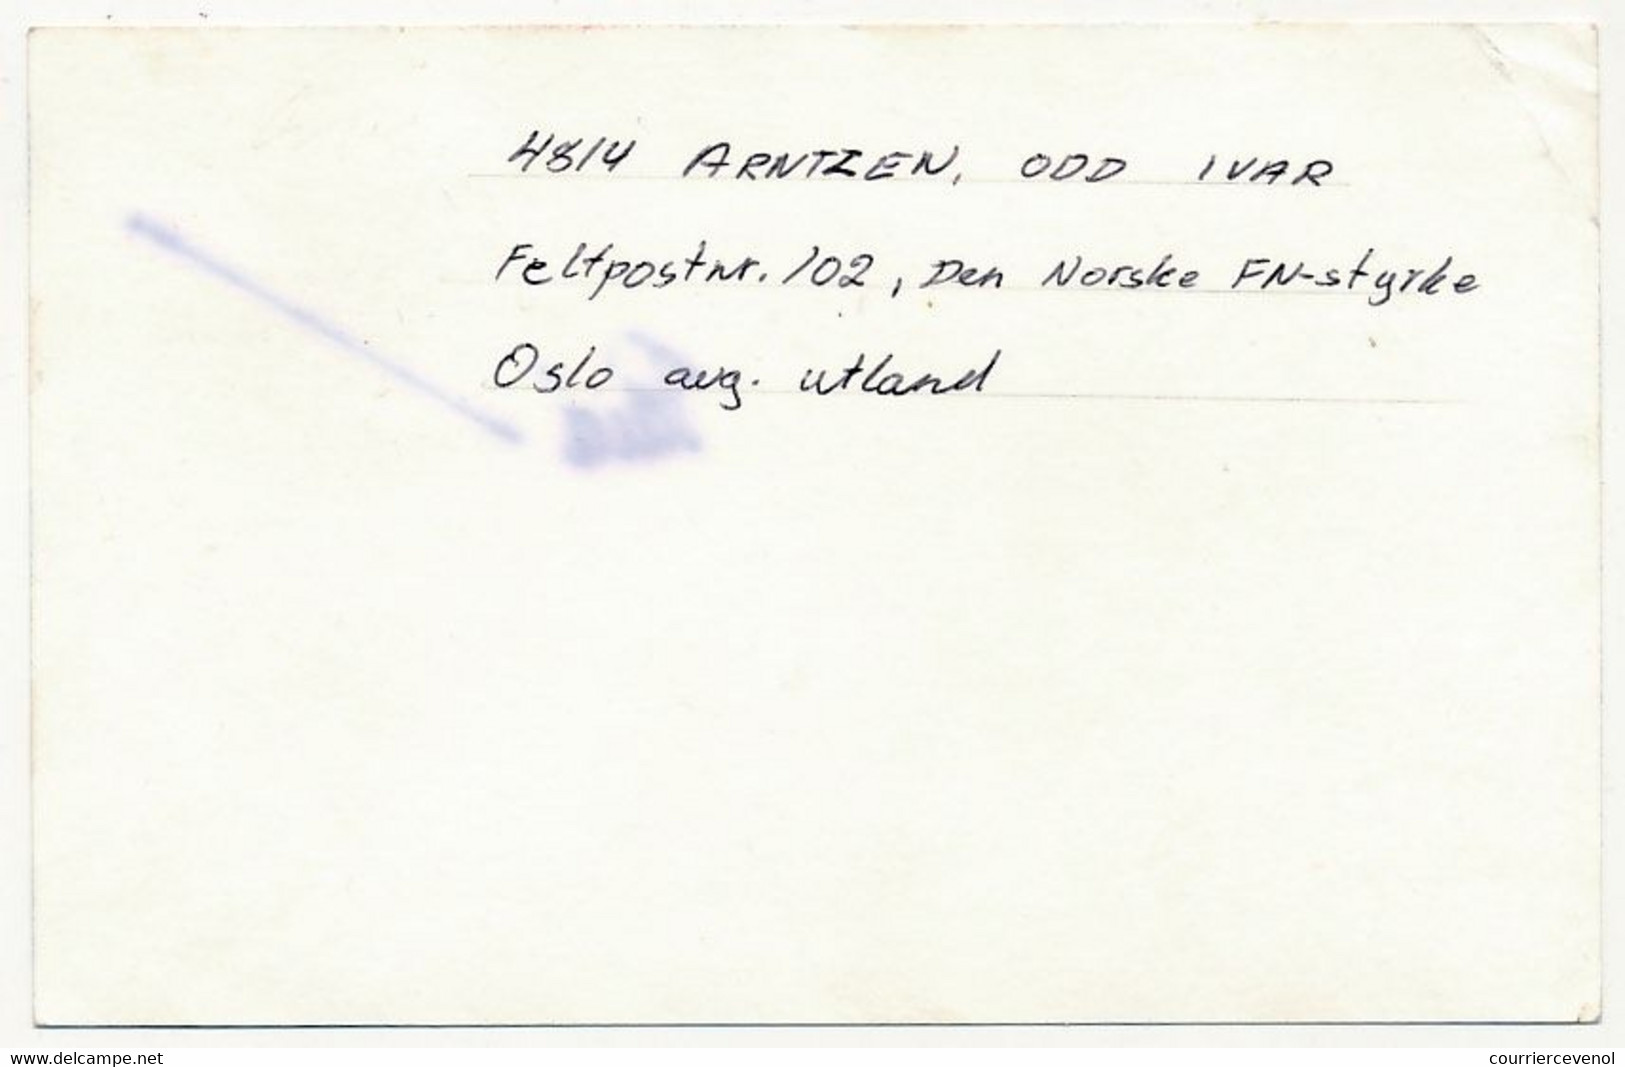 4814 ARNTZEN, ODD IVAR
Feltpostnr. 102, Den Norske FN-styrke
Oslo avg. utland
www.delcampe.net
courriercevenol